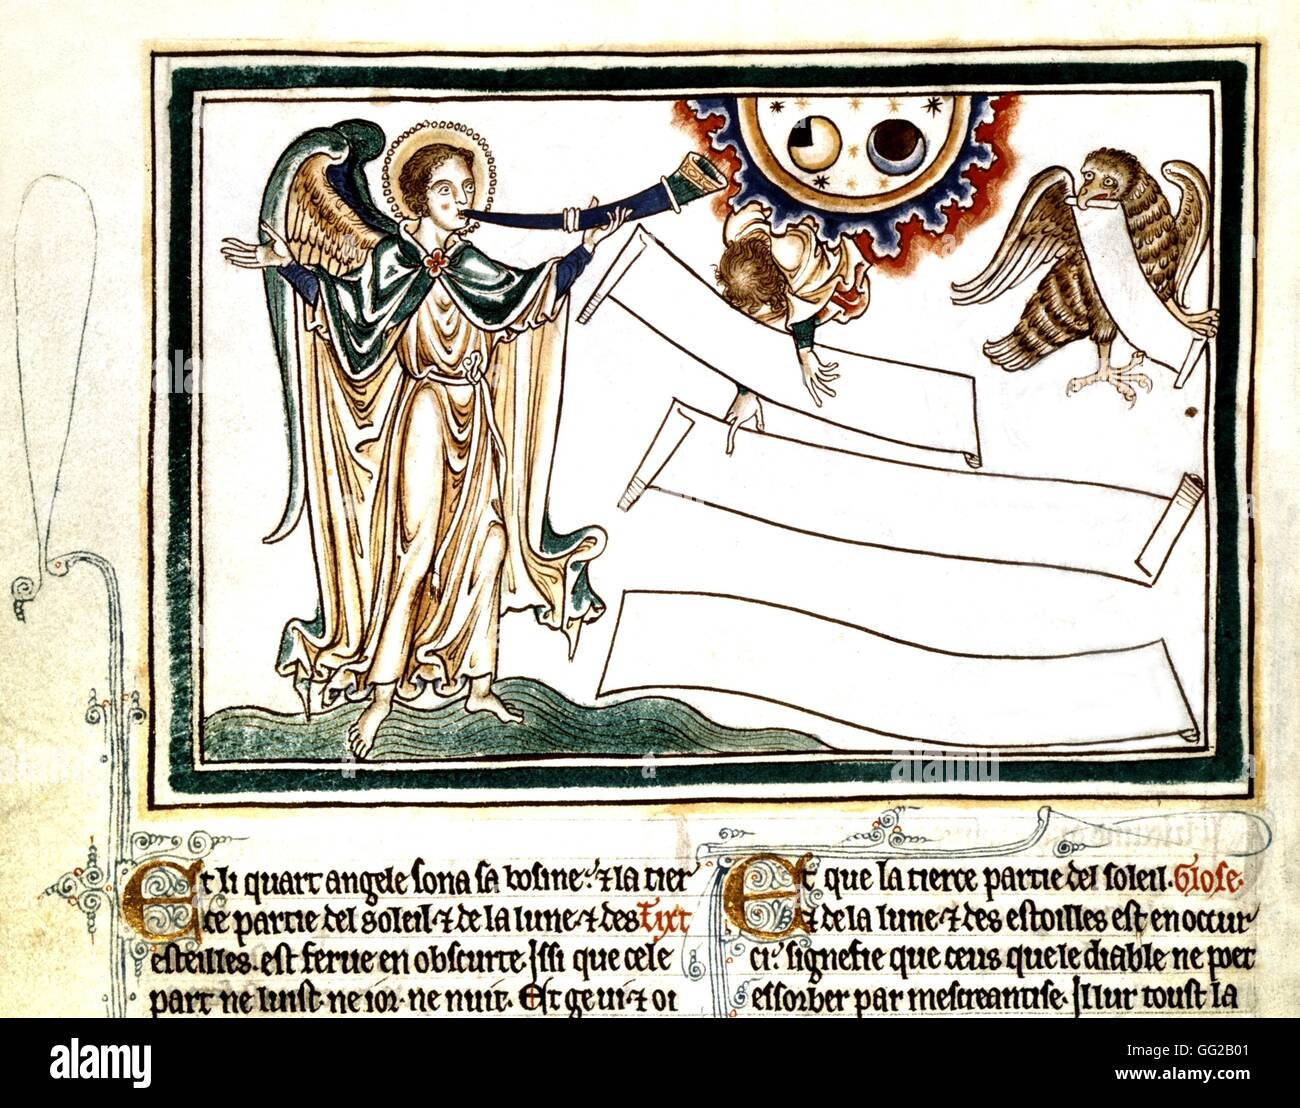 Et li quart angele sona sa bosine· ⁊ la tier
ce partie del soleil· ⁊ de la lune· ⁊ des Tixt
esteilles· est ferue en obscurte· Issi que cele
part ne luist· ne ior· ne nuit· Et ge ui ⁊ oi
Et que la tierce partie del soleil· Glose·
⁊ de la lune· ⁊ des estoilles est en occur
ci· signefie que ceus que le diable ne poet
essorber par mescreantise· Il lur toust la
alamy
Image ID: GG2B01
www.alamy.com